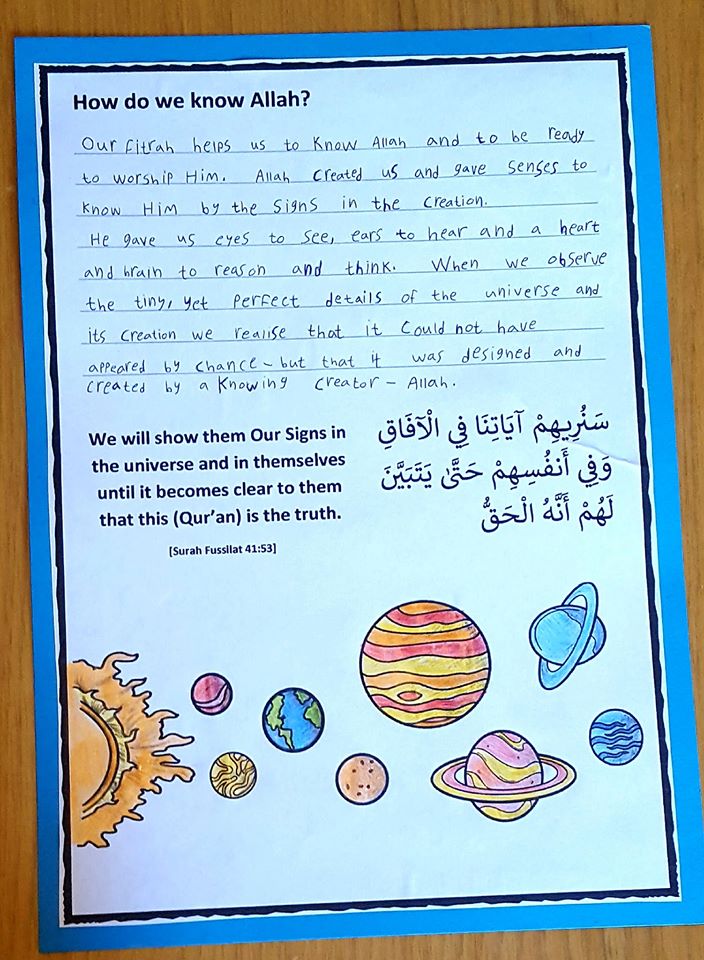 How do we know Allah?
Our fitrah helps us to know Allah and to be ready
to worship Him. Allah created us and gave senses to
know Him by the signs in the creation.
He gave us eyes to see, ears to hear and a heart
and brain to reason and think. When we observe
the tiny, yet perfect details of the universe and
its creation we realise that it could not have
appeared by chance - but that it was designed and
created by a Knowing Creator - Allah.
We will show them Our Signs in
the universe and in themselves
until it becomes clear to them
that this (Qur'an) is the truth.
[Surah Fussilat 41:53]
سَنُرِيهِمْ آيَاتِنَا فِي الْآفَاقِ
وَفِي أَنفُسِهِمْ حَتَّىٰ يَتَبَيَّنَ
لَهُمْ أَنَّهُ الْحَقُّ